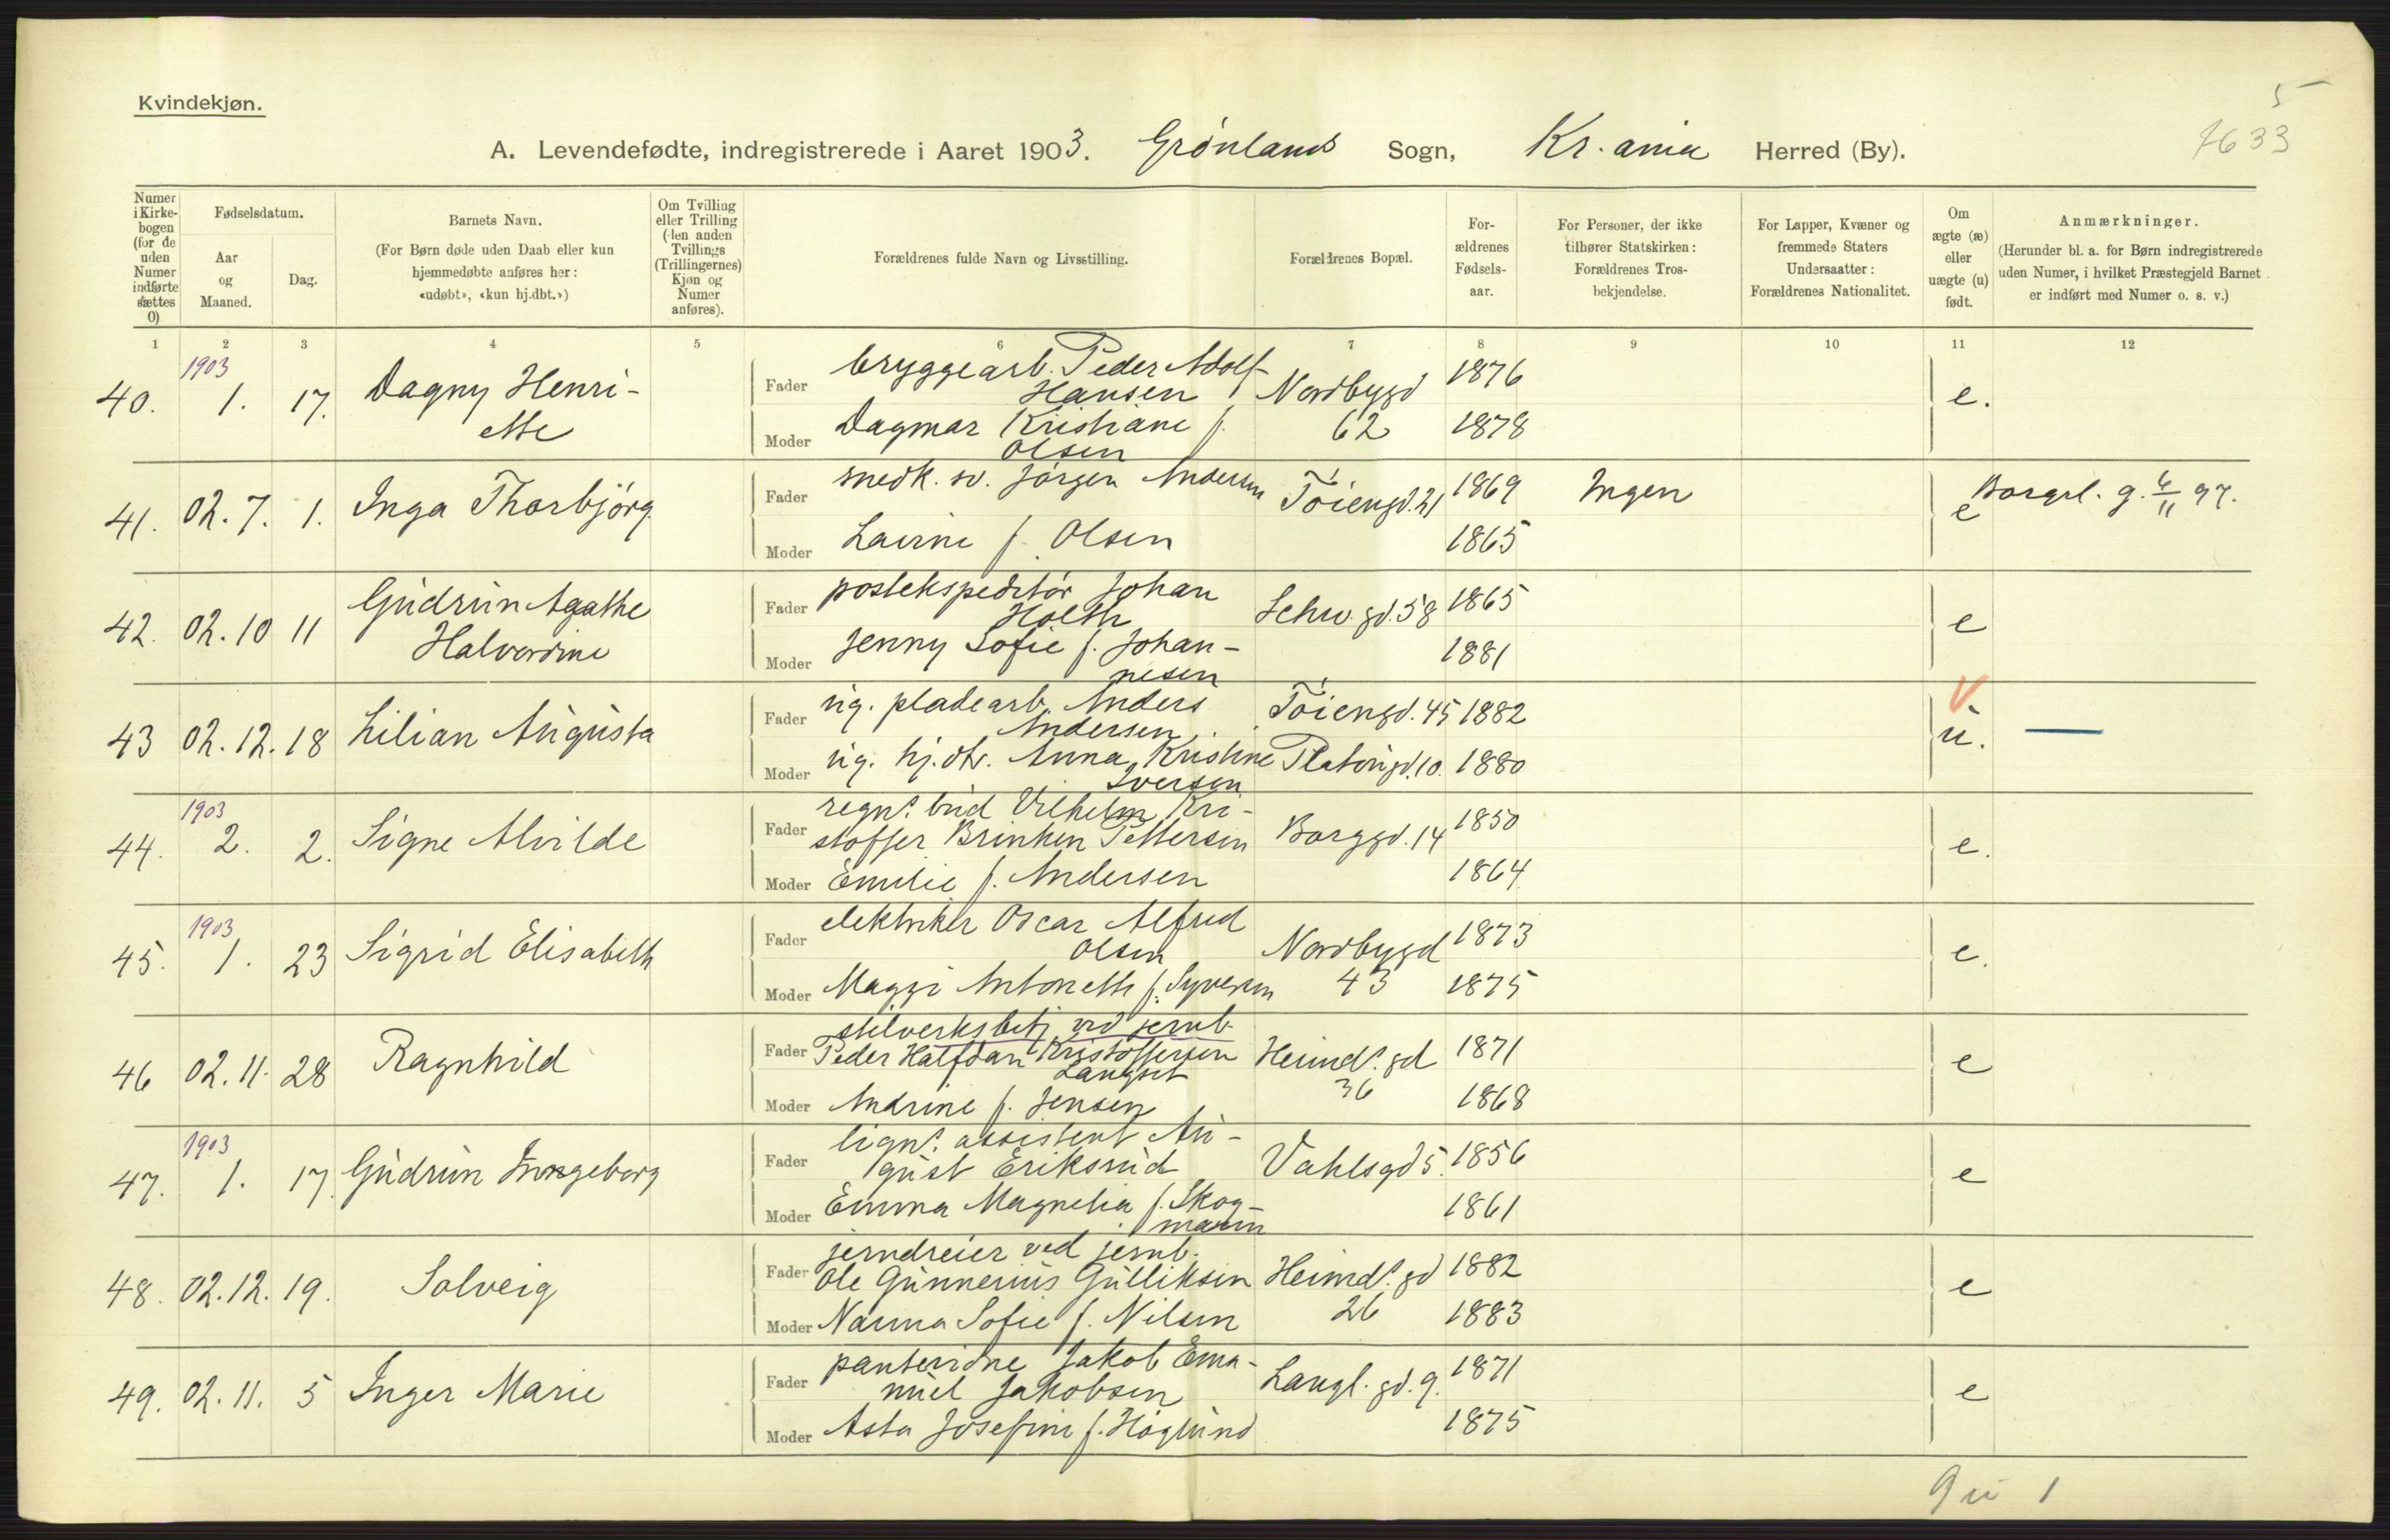 Kvindekjøn.
5
7633
A. Levendefødte, indregistrerede i Aaret 1903. Grönlands Sogn, Kr.ania Herred (By).
Numer i Kirke-bogen (for de uden Numer indførte sættes 0)
Fødselsdatum.
Aar og Maaned.
Dag.
Barnets Navn.
(For Børn døde uden Daab eller kun hjemmedøbte anføres her: «udøbt», «kun hj.dbt.»)
Om Tvilling eller Trilling (den anden Tvillings (Trillingernes) Kjøn og Numer anføres).
Forældrenes fulde Navn og Livsstilling.
Forældrenes Bopæl.
For-ældrenes Fødsels-aar.
For Personer, der ikke tilhører Statskirken: Forældrenes Tros-bekjendelse.
For Lapper, Kvæner og fremmede Staters Undersaatter: Forældrenes Nationalitet.
Om ægte (æ) eller uægte (u) født.
Anmærkninger.
(Herunder bl. a. for Børn indregistrerede uden Numer, i hvilket Præstegjeld Barnet er indført med Numer o. s. v.)
1 2 3 4 5 6 7 8 9 10 11 12
40. 1903 1. 17. Dagny Henri-
ette
Fader bryggearb. Peder Adolf
Hansen Nordbygd 1876 e.
Moder Dagmar Kristiane f. 62 1878
Olsen
41. 02.7. 1. Inga Thorbjörg
Fader snedk. sv. Jörgen Andersen Töiengd.21 1869 Ingen e Borgerl. g. 6/11 97.
Moder Lavine f. Olsen 1865
42. 02.10 11 Gudrun Agathe
Halvordine
Fader postekspeditör Johan
Holth Schw.gd.58 1865 e
Moder Jenny Sofie f. Johan-
nesen 1881
43 02.12. 18 Lilian Augusta
Fader ug. pladearb. Anders
Andersen Töiengd.45 1882 u.
Moder ug. hj.dtr. Anna Kristine
Iversen Platöugd.10. 1880
44. 1903 2. 2. Signe Alvilde
Fader regns. bud Vilhelm Kri-
stoffer Brinken Pettersen Borggd.14 1850 e.
Moder Emilie f. Andersen 1864
45. 1903 1. 23 Sigrid Elisabeth
Fader elektriker Oscar Alfred
Olsen Nordbygd 1873 e.
Moder Maggi Antonette f. Syversen 43 1875
46 02.11. 28 Ragnhild
stilverksbetj. ved jernb.
Fader Peder Halfdan Kristoffersen
Langset Heimd.s gd 1871 e
Moder Andrine f. Jensen 36 1868
47. 1903 1. 17. Gudrun Ingeborg
Fader lign.s assistent Au-
gust Eriksrud Vahlsgd 5. 1856 e
Moder Emma Magnelia f. Skog-
mann 1861
48. 02.12. 19. Solveig
jerndreier ved jernb.
Fader Ole Gunnerius Gulliksen Heimd.s gd 1882 e
Moder Nanna Sofie f. Nilsen 26 1883
49. 02.11. 5 Inger Marie
Fader Jakob Ema-
nuel Jakobsen Langl. gd. 9. 1871 e
Moder Asta Josefine f. Höglund 1875
9 u 1